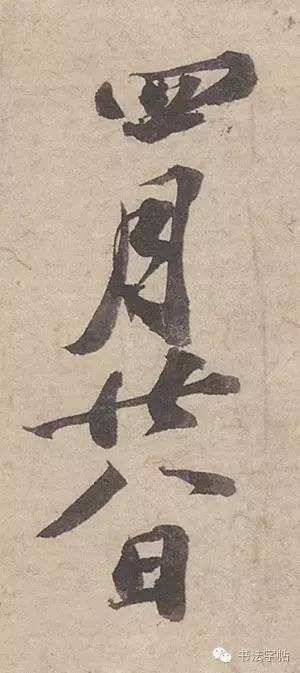 四月廿八日
书法字帖